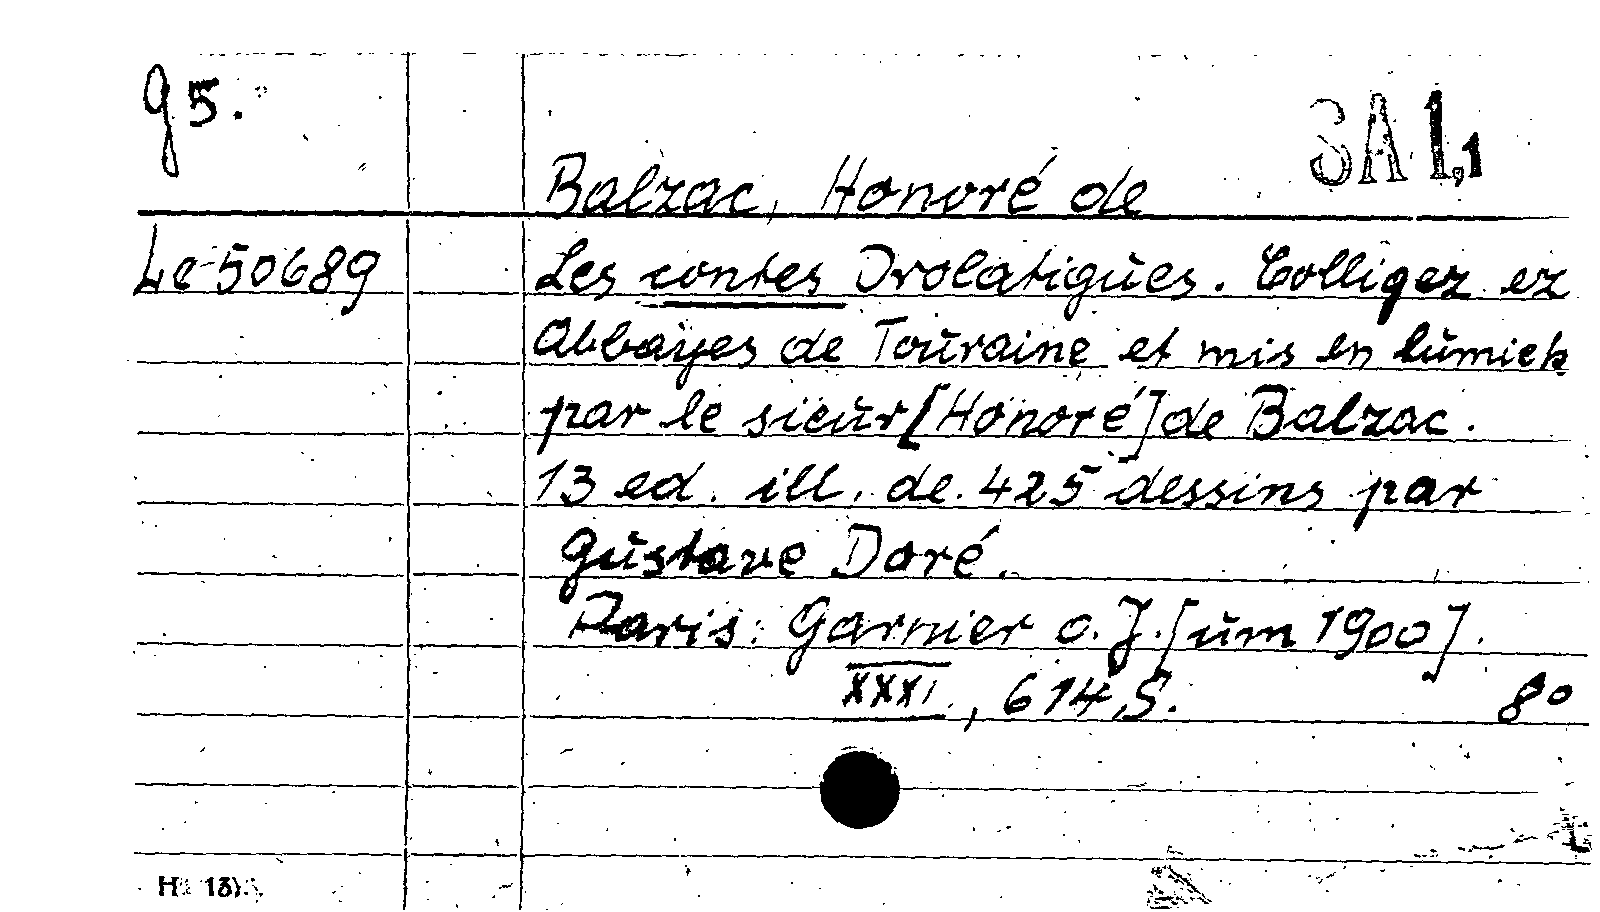 g5.
SA 1,1
Balzac, Honoré de
Le 50689
Les contes Drolatiques. Colligez ez
Abbayes de Touraine et mis en lumiek
par le sieur [Honoré] de Balzac.
13 ed. ill. de. 425 dessins par
Gustave Doré.
Paris: Garnier o. J. [um 1900].
XXXI, 614 S. 8°